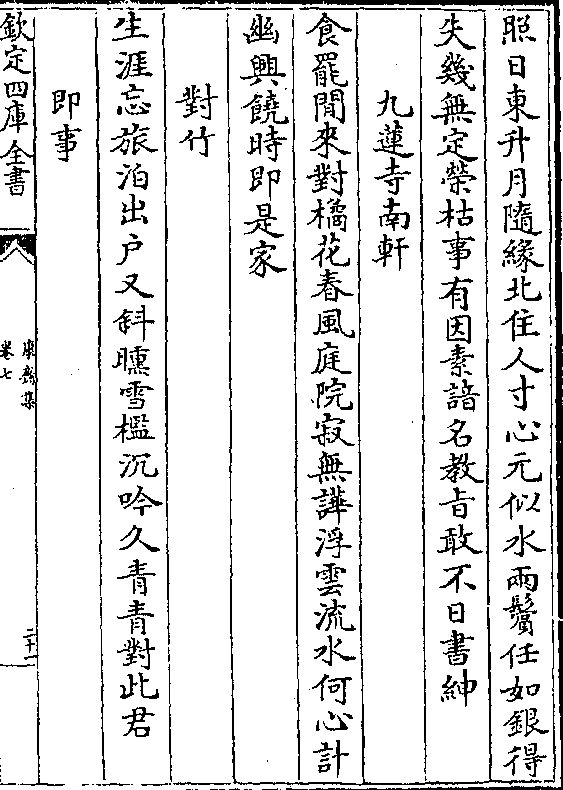 照日東升月隨緣北住人寸心元似水兩鬢任如銀得
失幾無定榮枯事有因素諳名教旨敢不日書紳
九蓮寺南軒
食罷閒來對橘花春風庭院寂無譁浮雲流水何心計
幽興饒時即是家
對竹
生涯忘旅泊出户又斜曛雪檻沉吟久青青對此君
即事
欽定四庫全書
康齋集
卷七
二十一